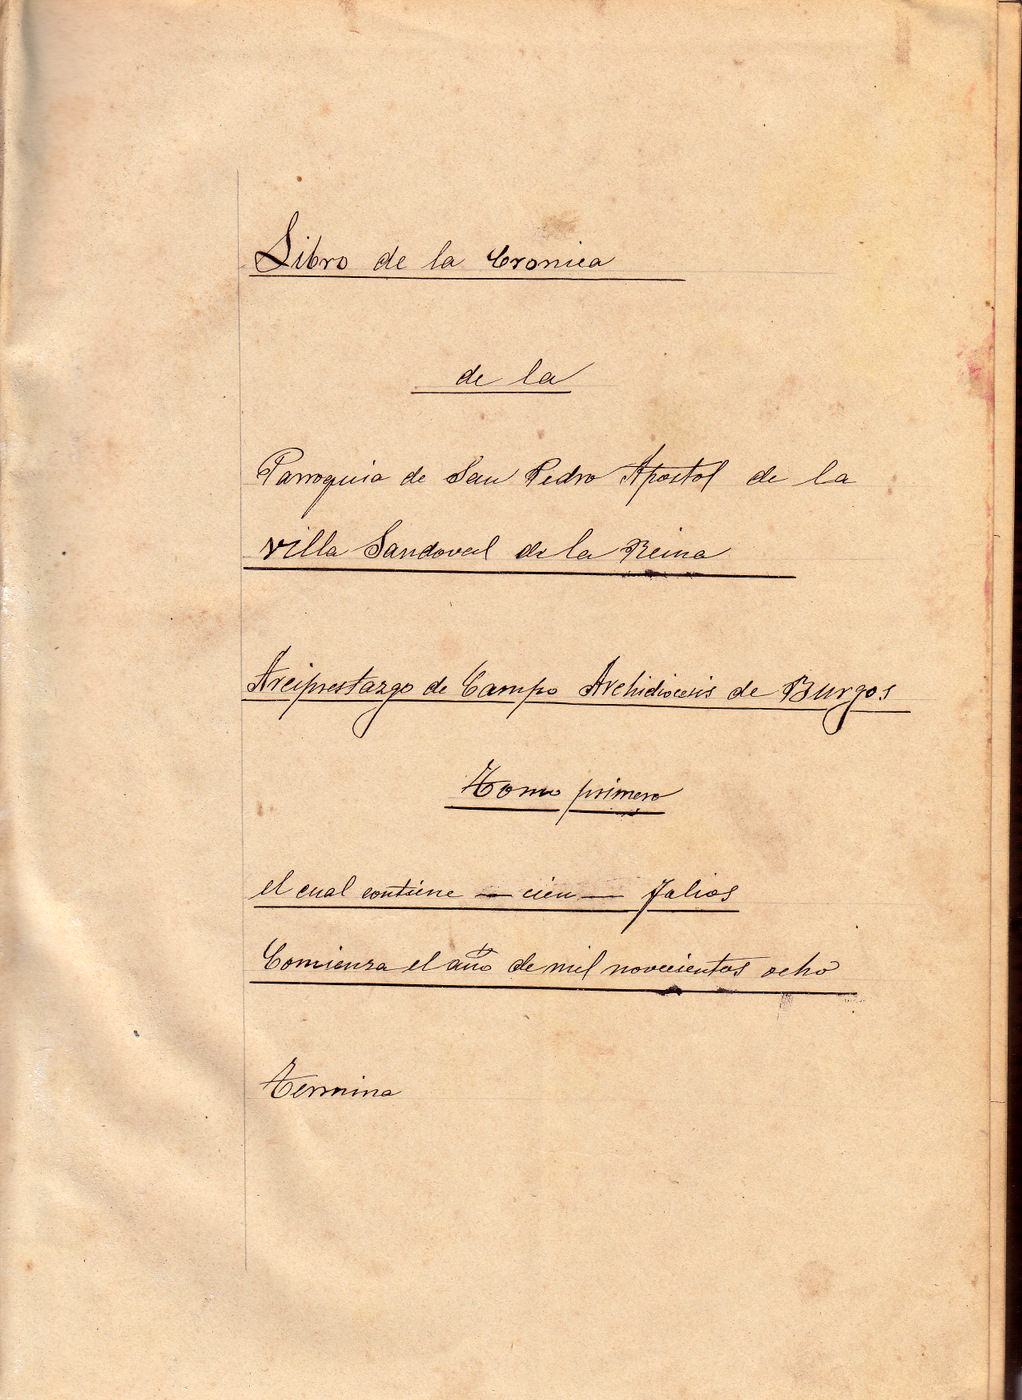 Libro de la Cronica
de la
Parroquia de San Pedro Apostol de la
Villa Sandoval de la Reina
Arciprestazgo de Campo Archidiocesis de Burgos
Tomo primero
el cual contiene — cien — folios
Comienza el año de mil novecientos ocho
Termina